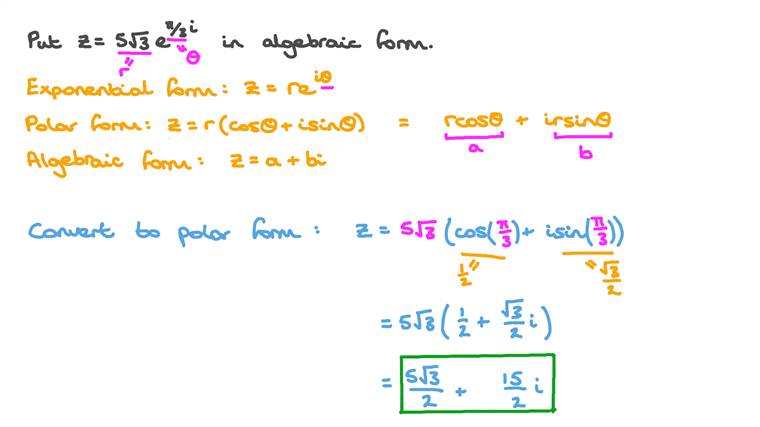 Put z = 5√3 e^(π/3 i) in algebraic form.
r = θ =
Exponential form: z = re^(iθ)
Polar form: z = r(cosθ + isinθ) = rcosθ + irsinθ
a b
Algebraic form: z = a + bi
Convert to polar form: z = 5√3 (cos(π/3) + isin(π/3))
1/2 = = √3/2
= 5√3 (1/2 + √3/2 i)
= 5√3/2 + 15/2 i